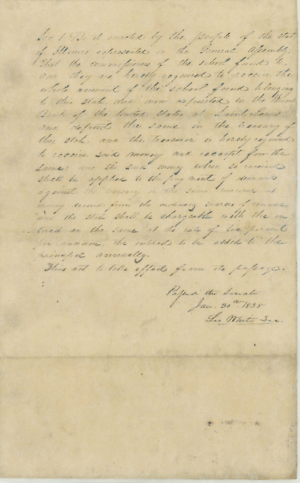 Sec 1 Be it enacted by the people of the state
of Illinois represented in the General Assembly
That the commissioners of the school fund be
and they are hereby required to receive the
whole amount of the school funds belonging
to this state now deposited in the
Bank of the United States at Saint Louis
and deposit the same in the Treasury of
this state and the Treasurer is hereby required
to receive said money and receipt for the
same and the said money when so received
shall be applied to the payment of
against the Treasury in the same manner as
money from the ordinary sources of revenue
and the state shall be chargeable with the
on the same at the rate of six per cent
per annum the interest to be added to the
principal annually.
This act to take effect from its passage
Passed the Senate
Jan. 30th
Leo White Sec